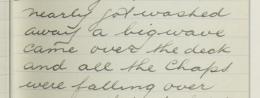 nearly got washed
away a big wave
came over the deck
and all the Chaps
were falling over